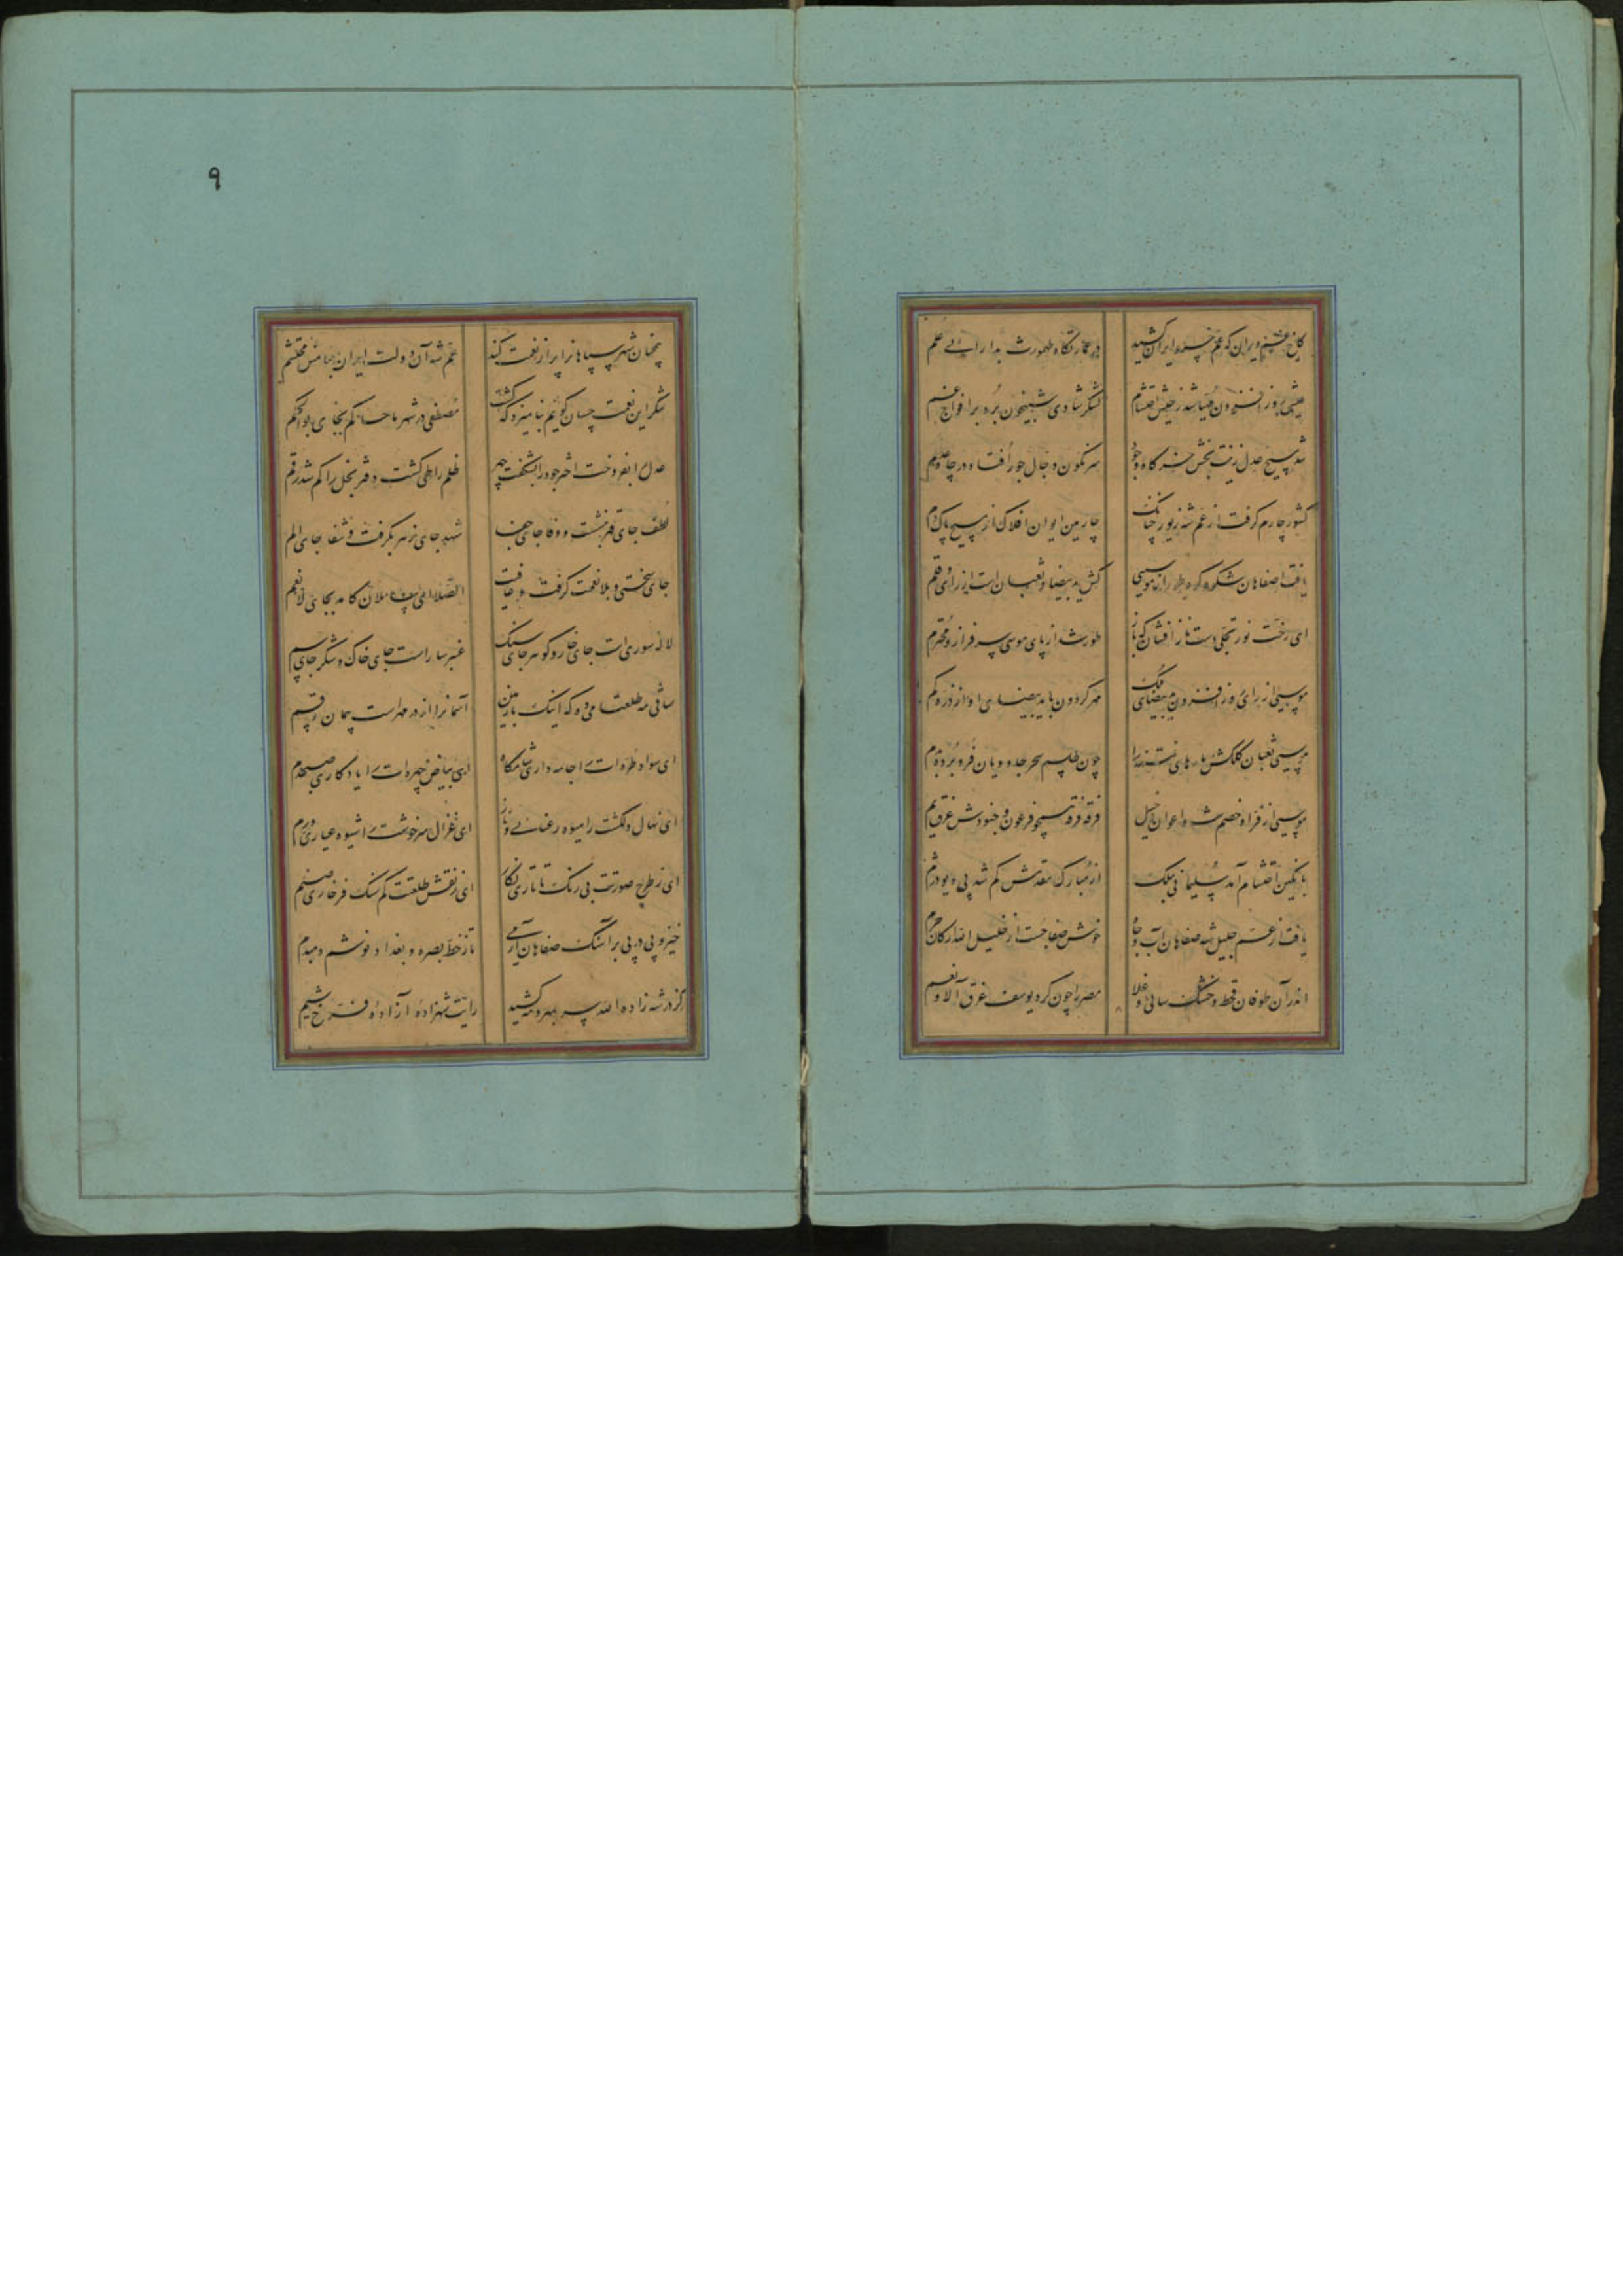 کاخ غم شد ویران که عم خسرو ایران کشید
در عمارتگاه طهمورث بدارایی علم
عیش روز افزون
لشکر شادی شبیخون برد بر افواج غم
شد مسیح عدل زینت بخش خرگاه وجود
سرنگون دجال جور افتاد در چاه عدم
کشور چارم گرفت از عم شه زیور چنانک
چارمین ایوان افلاک از مسیح پاک دم
یافت اصفاهان شکوه کوه طور از موسیی
کش ید بیضا و ثعبان است از رای و قلم
ای رخت نور تجلی دست ناز افشان که باز
طور شد از پای موسی سرفراز و محترم
موسیی از رای روز افزون ید بیضای ملک
مهر گردون با ید بیضای او از ذره کم
موسیی ثعبان کلکش مارهای فتنه را
چون طلسم سحر جادویان فرو برده بدم
موسیی از فر او خصم شه و اعوان خیل
فرقه فرقه همچو فرعون و جنودش غرق یم
با نگین احتشام آمد سلیمانی بملک
از مبارک مقدمش گم شد پی دیو دژم
یافت از عم جلیل شه صفاهان آب و جاه
خوش صفا جست از خلیل الله ارکان حرم
اندر آن طوفان قحط و خشک سالی و غلا
مصر را چون کرد یوسف غرق آلا و نعم
۹
همچنان شهر سپاهان را پر از نعمت کند
عم شه آن دولت ایران بنامش محتشم
شکر این نعمت چسان گویم بنامیزد که گشت
مصطفی در شهر ما حاکم بجای بوالحکم
عدل را بفروخت اختر جود را بشکفت چهر
ظلم را طی گشت دفتر بخل را گم شد رقم
لطف جای قهر بنشست و وفا جای جفا
شهد جای زهر بگرفت و شفا جای الم
جای سختی و بلا نعمت گرفت و عافیت
الصلا ای سائلان کامد بجای لا نعم
لاله سوری است جای خار و گوهر جای سنگ
عنبر ساراست جای خاک و شکر جای سم
ساقی مه طلعتا می ده که اینک با زمین
آسمان را از در مهر است پیمان و قسم
ای سواد طره ات را جامه داری شامگاه
ای بیاض چهره ات را یادگاری صبحدم
ای نهال دلکشت را میوه رعنایی و ناز
ای غزال سرخوشت را شیوه عیاری و رم
ای ز طرح صورتت بی رنگ تاتاری نگار
ای ز نقش طلعتت گم سنگ فرخاری صنم
خیز و پی در پی بر آهنگ صفاهان آر می
تا ز خط بصره و بغداد نوشم دمبدم
کز در شه زاده الله سر بمهر و مه کشید
رایت شهزاده آزاده فرخ شیم